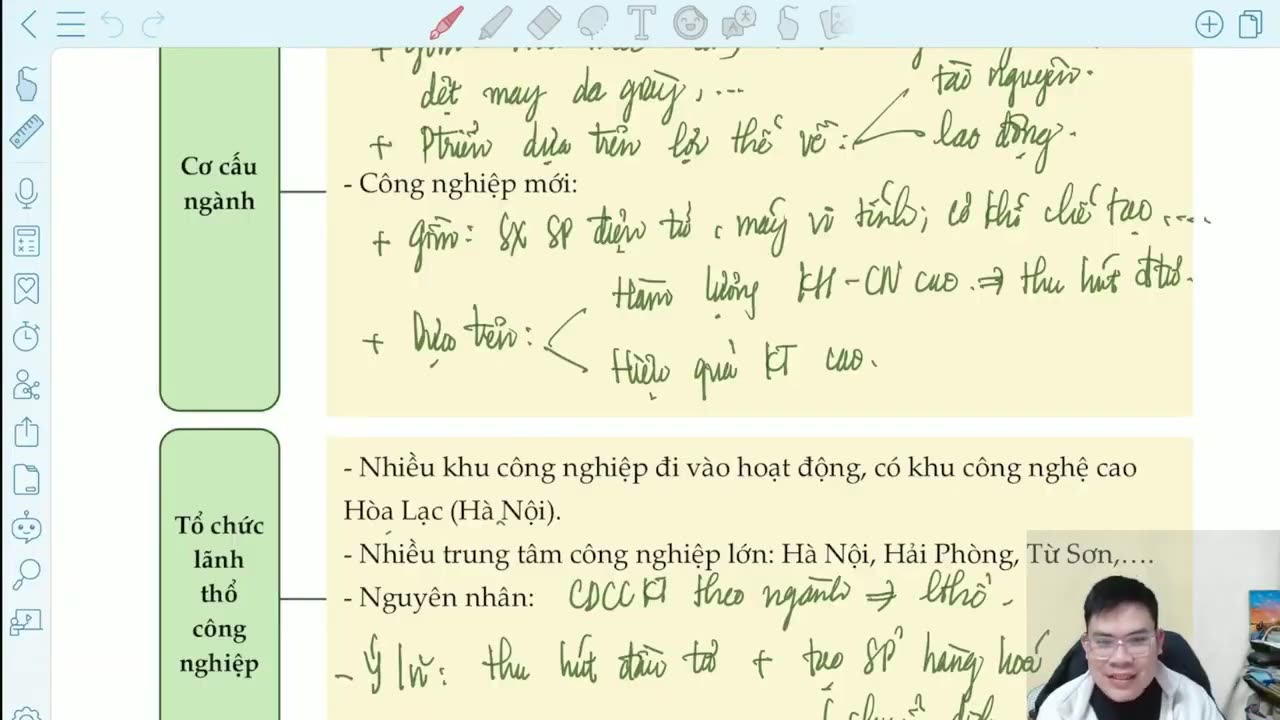 dệt may da giày, ...
tài nguyên.
+ Ptriển dựa trên lợi thế về:
lao động.
Cơ cấu
ngành
- Công nghiệp mới:
+ gồm: SX SP điện tử, máy vi tính; cơ khí chế tạo,....
Hàm lượng KH-CN cao. ⇒ thu hút đtư.
+ Dựa trên:
Hiệu quả KT cao.
Tổ chức
lãnh
thổ
công
nghiệp
- Nhiều khu công nghiệp đi vào hoạt động, có khu công nghệ cao
Hòa Lạc (Hà Nội).
- Nhiều trung tâm công nghiệp lớn: Hà Nội, Hải Phòng, Từ Sơn,….
- Nguyên nhân: CDCCKT theo ngành ⇒ lthổ.
- Ý nghĩa: thu hút đầu tư + tạo SP hàng hoá